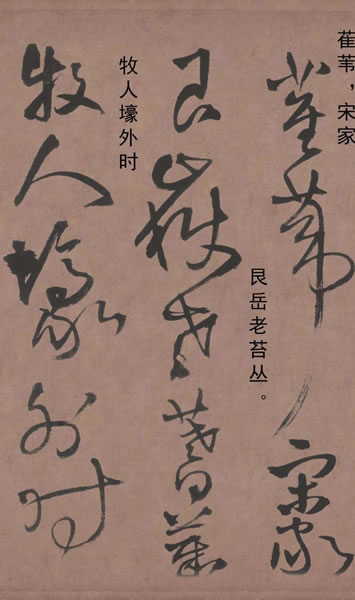 萑苇，宋家
萑葦宋家
艮岳老苔丛。
艮嶽老苔藂
牧人壕外时
牧人壕外时